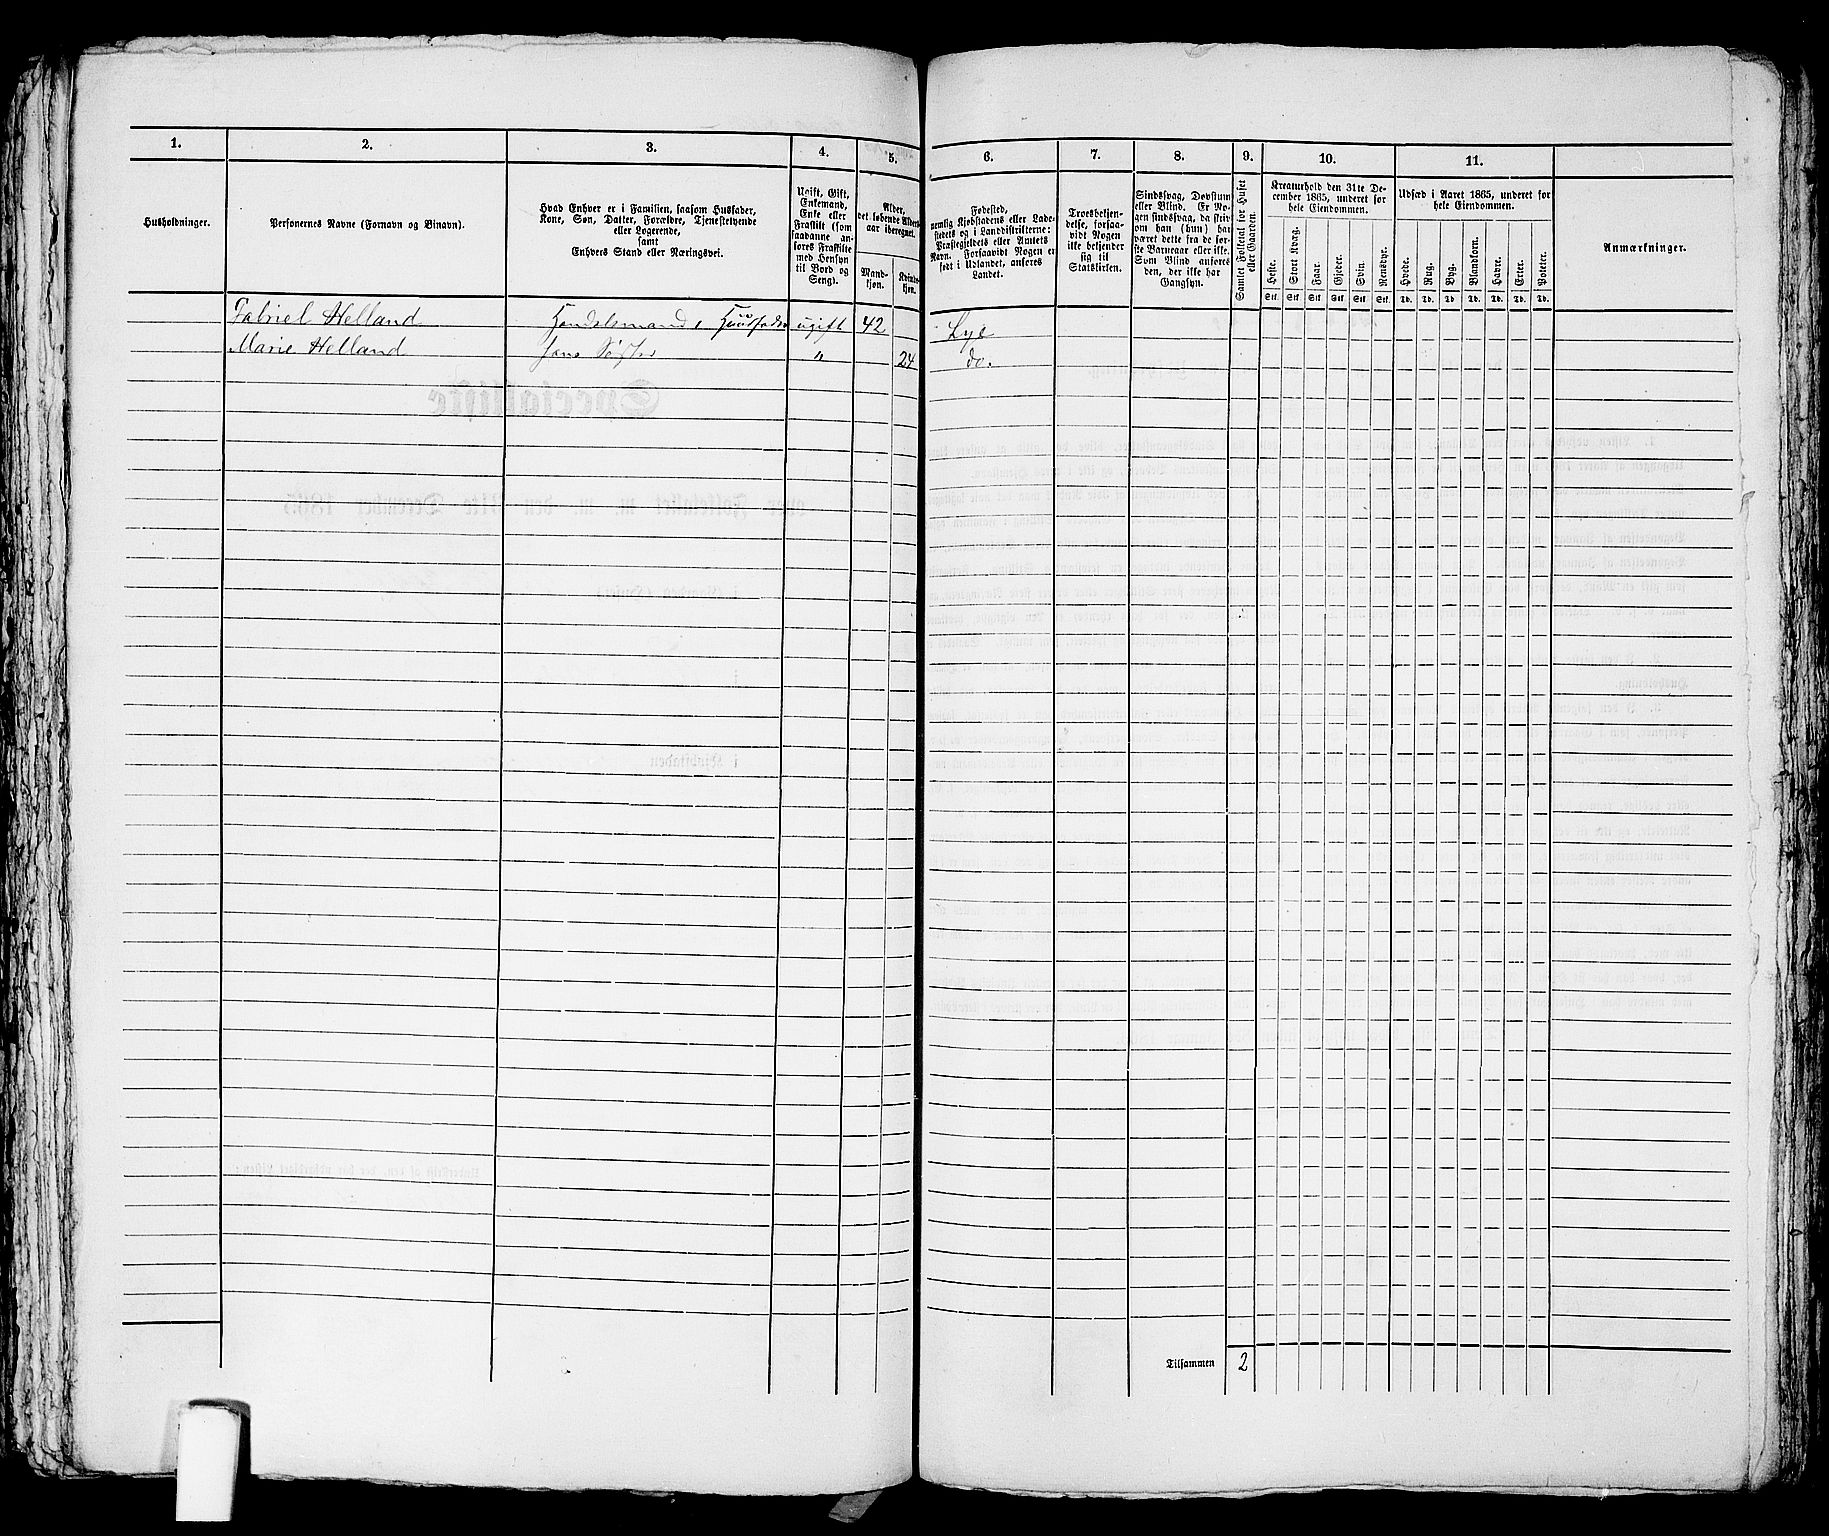 1.
2.
3.
4.
5.
6.
7.
8.
9.
10.
11.
Husholdninger.
Personernes Navne (Fornavn og Binavn).
Hvad Enhver er i Familien, saasom Husfader,
Kone, Søn, Datter, Forældre, Tjenestetyende
eller Logerende,
samt
Enhvers Stand eller Næringsvei.
Ugift, Gift,
Enkemand,
Enke eller
Fraskilt (som
saadanne an-
føres Fraskilte
med Hensyn
til Bord og
Seng).
Alder,
det løbende Alders-
aar iberegnet.
Mand-
kjøn.
Kvinde-
kjøn.
Fødested,
nemlig Kjøbstadens eller Lade-
stedets og i Landdistrikterne:
Præstegjeldets eller Amtets
Navn. Forsaavidt Nogen er
født i Udlandet, anføres
Landet.
Troesbekjen-
delse, forsaa-
vidt Nogen
ikke bekjender
sig til
Statskirken.
Sindssvag, Døvstum
eller Blind. Er No-
gen sindssvag, da skriv
om han (hun) har
været dette fra de før-
ste Barneaar eller ikke.
Som Blind anføres
den, der ikke har
Gangsyn.
Samlet Folketal for Huset
eller Gaarden.
Kreaturhold den 31te De-
cember 1865, underet for
hele Eiendommen.
Heste.
Stort Kvæg.
Faar.
Gjeder.
Svin.
Rensdyr.
Stk. Stk. Stk. Stk. Stk. Stk.
Udsæd i Aaret 1865, underet for
hele Eiendommen.
Hvede.
Rug.
Byg.
Blandkorn.
Havre.
Erter.
Poteter.
Td. Td. Td. Td. Td. Td. Td.
Anmærkninger.
Gabriel Helland Handelsmand, Huusfader ugift 42 Lye
Marie Helland hans Søster " 24 do.
Tilsammen 2